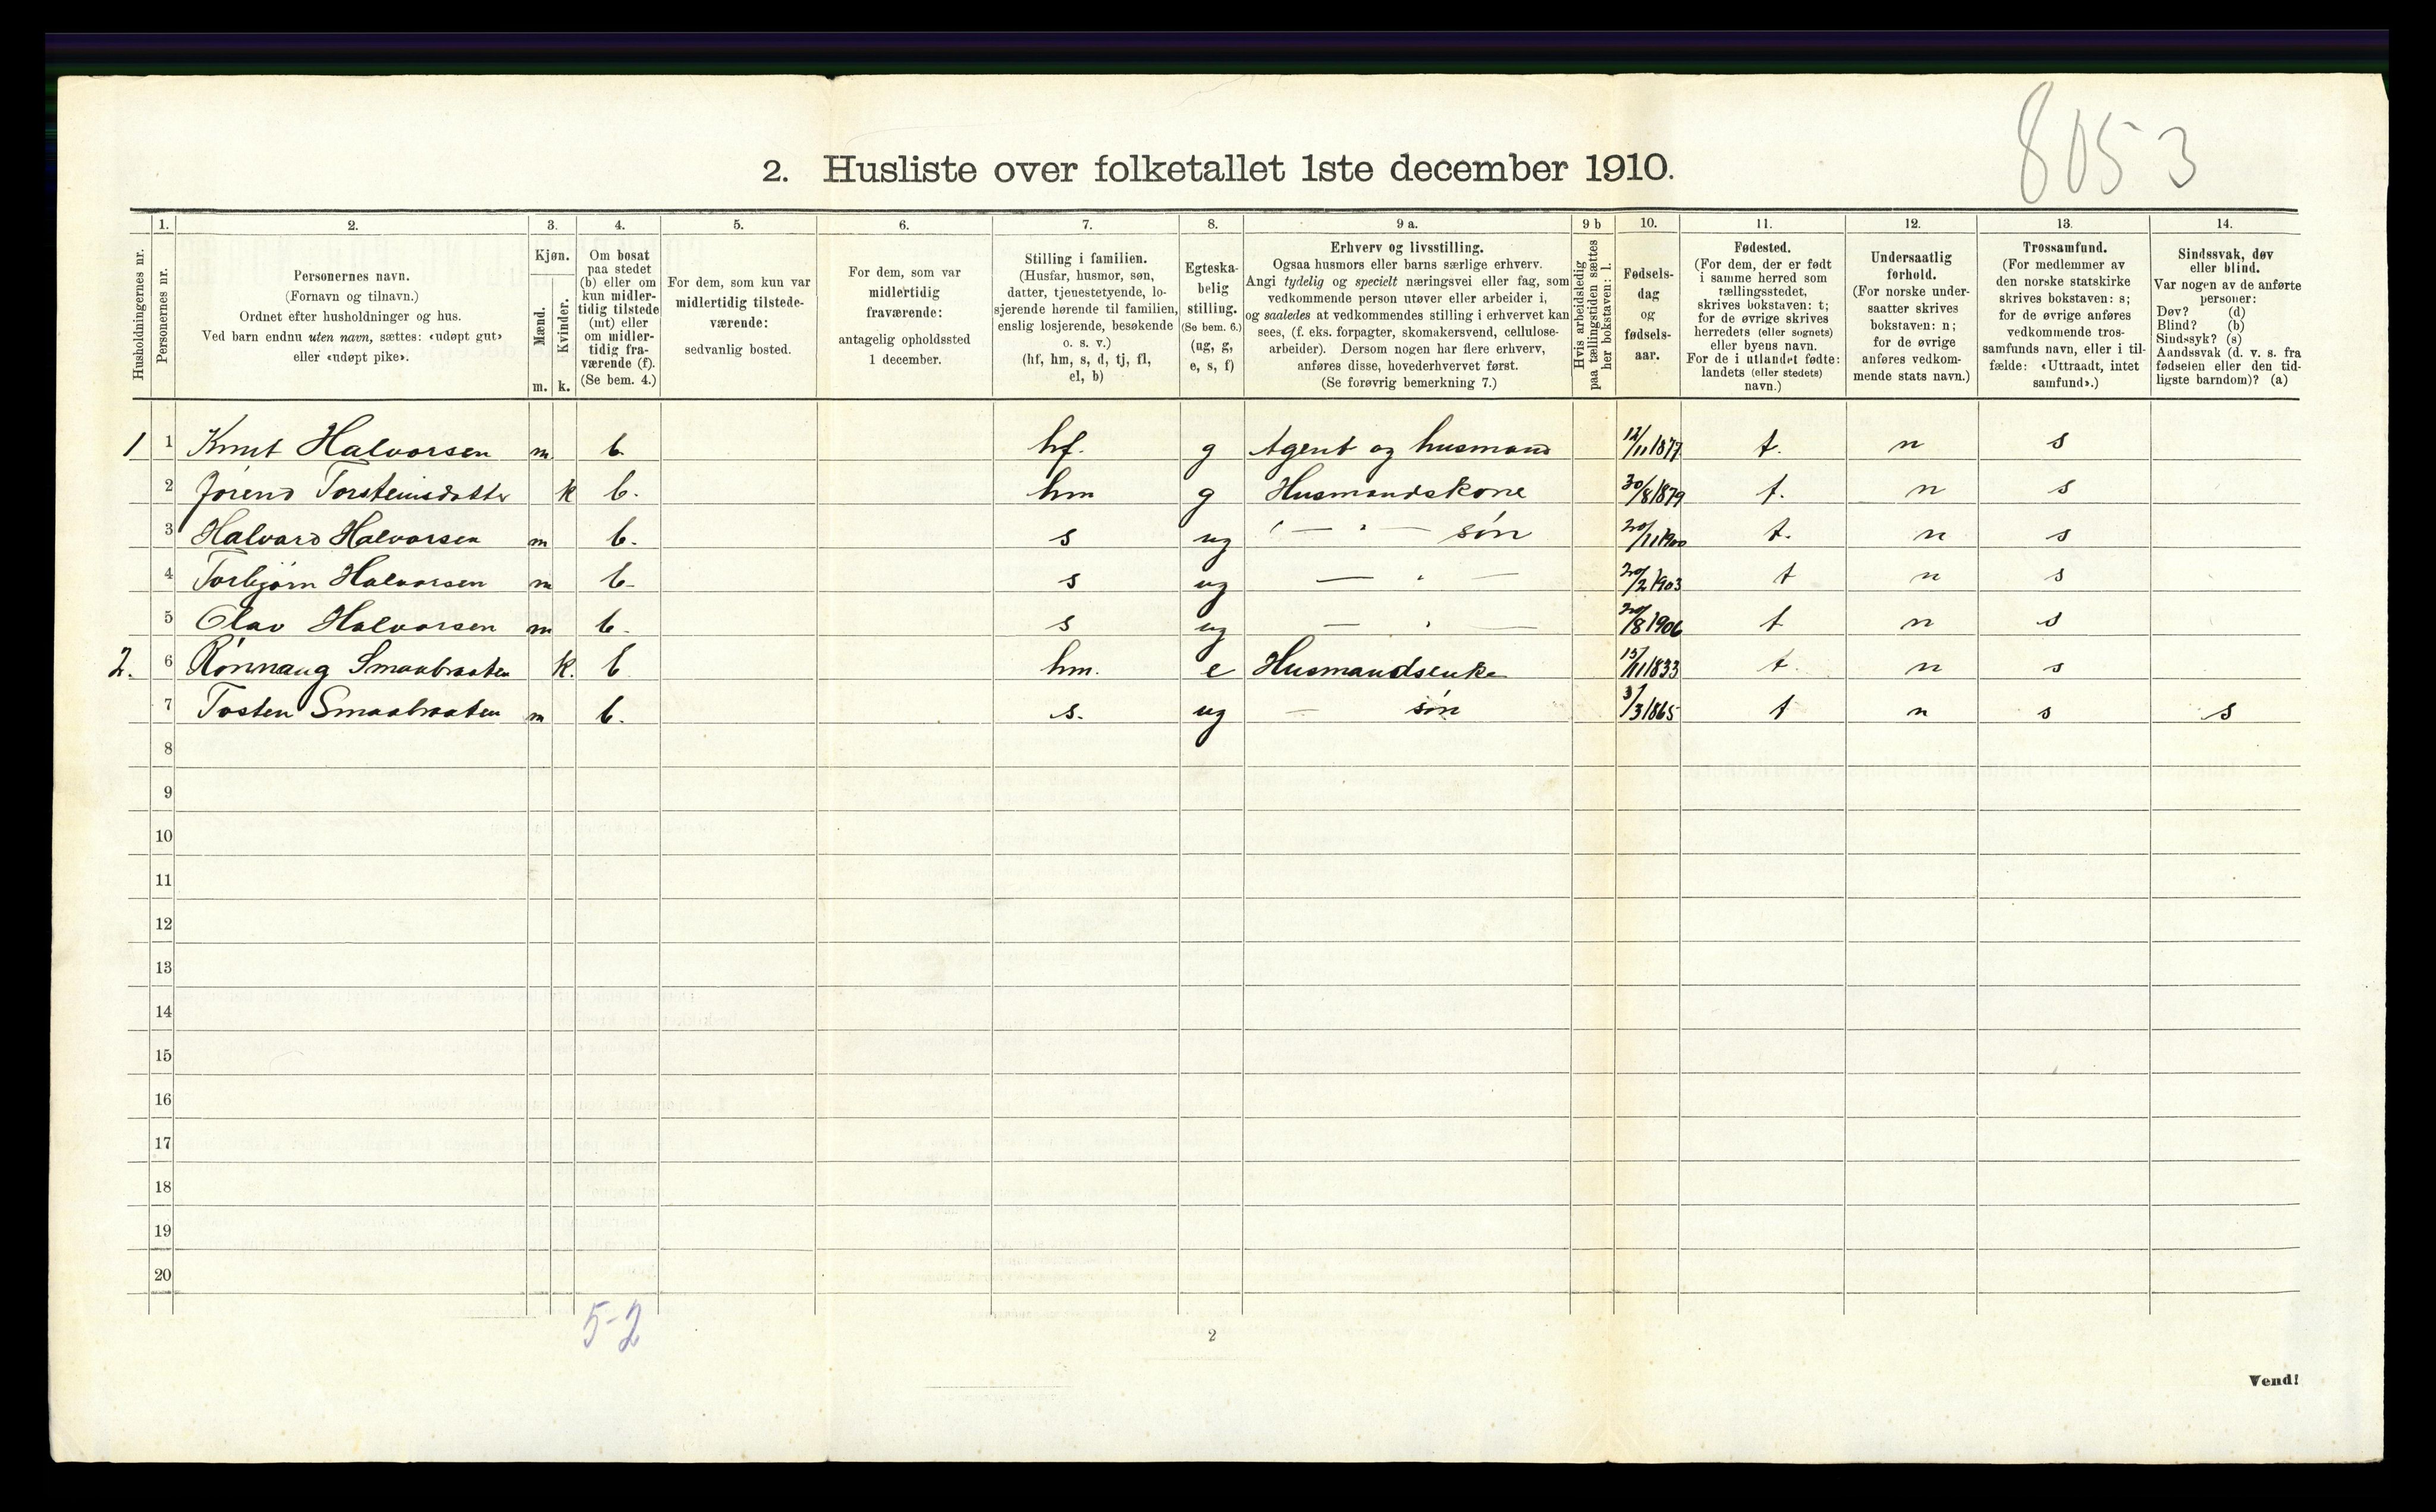 8053
2. Husliste over folketallet 1ste december 1910.
Husholdningernes nr.
1.
Personernes nr.
2.
Personernes navn.
(Fornavn og tilnavn.)
Ordnet efter husholdninger og hus.
Ved barn endnu uten navn, sættes: «udøpt gut»
eller «udøpt pike».
3.
Kjøn.
Mænd.
m.
Kvinder.
k.
4.
Om bosat
paa stedet
(b) eller om
kun midler-
tidig tilstede
(mt) eller
om midler-
tidig fra-
værende (f).
(Se bem. 4.)
5.
For dem, som kun var
midlertidig tilstede-
værende:
sedvanlig bosted.
6.
For dem, som var
midlertidig
fraværende:
antagelig opholdssted
1 december.
7.
Stilling i familien.
(Husfar, husmor, søn,
datter, tjenestetyende, lo-
sjerende hørende til familien,
enslig losjerende, besøkende
o. s. v.)
(hf, hm, s, d, tj, fl,
el, b)
8.
Egteska-
belig
stilling.
(Se bem. 6.)
(ug, g,
e, s, f)
9 a.
Erhverv og livsstilling.
Ogsaa husmors eller barns særlige erhverv.
Angi tydelig og specielt næringsvei eller fag, som
vedkommende person utøver eller arbeider i,
og saaledes at vedkommendes stilling i erhvervet kan
sees, (f. eks. forpagter, skomakersvend, cellulose-
arbeider). Dersom nogen har flere erhverv,
anføres disse, hovederhvervet først.
(Se forøvrig bemerkning 7.)
9 b
Hvis arbeidsledig
paa tællingstiden sættes
her bokstaven: l.
10.
Fødsels-
dag
og
fødsels-
aar.
11.
Fødested.
(For dem, der er født
i samme herred som
tællingsstedet,
skrives bokstaven: t;
for de øvrige skrives
herredets (eller sognets)
eller byens navn.
For de i utlandet fødte:
landets (eller stedets)
navn.)
12.
Undersaatlig
forhold.
(For norske under-
saatter skrives
bokstaven: n;
for de øvrige
anføres vedkom-
mende stats navn.)
13.
Trossamfund.
(For medlemmer av
den norske statskirke
skrives bokstaven: s;
for de øvrige anføres
vedkommende tros-
samfunds navn, eller i til-
fælde: «Uttraadt, intet
samfund».)
14.
Sindssvak, døv
eller blind.
Var nogen av de anførte
personer:
Døv? (d)
Blind? (b)
Sindssyk? (s)
Aandssvak (d. v. s. fra
fødselen eller den tid-
ligste barndom)? (a)
1 1 Knut Halvorsen m b. hf. g Agent og husmand 12/11 1877 t. n s
2 Jorend Torsteinsdatter k b. hm g Husmandskone 30/8 1879 t. n s
3 Halvard Halvorsen m b. s ug — " — søn 20/11 1900 t. n s
4 Torbjørn Halvorsen m b. s ug — " — 20/2 1903 t n s
5 Olav Halvorsen m b. s ug — " — 20/8 1906 t n s
2. 6 Rønnaug Smaabraaten k. b hm. e Husmandsenke 15/11 1833 t. n s
7 Tosten Smaabraaten m b. s. ug — søn 3/3 1865 t n s s
8
9
10
11
12
13
14
15
16
17
18
19
20
5-2
2
Vend!